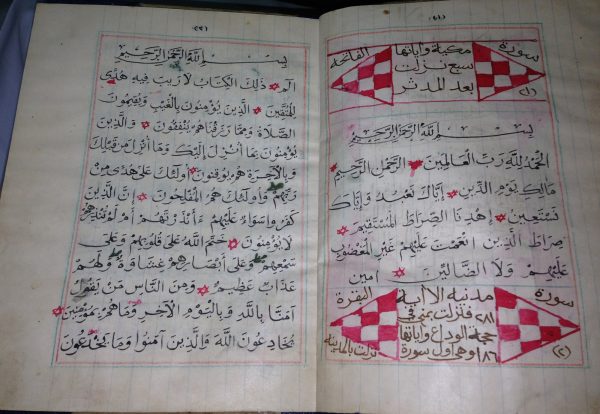 (٤١)
سورة
(١)
مكية وآياتها
سبع نزلت
بعد المدثر
الفاتحة
بسم الله الرحمن الرحيم
الحمد لله رب العالمين الرحمن الرحيم
مالك يوم الدين إياك نعبد وإياك
نستعين إهدنا الصراط المستقيم
صراط الذين انعمت عليهم غير المغضوب
عليهم ولا الضالين امين
سورة
(٢)
مدنية الا آية
٢٨١ فنزلت بمنى في
حجة الوداع وآياتها
١٨٦ وهي اول سورة
البقرة
نزلت بالمدينة
بسم الله الرحمن الرحيم
الم ذلك الكتاب لا ريب فيه هدى
للمتقين الذين يؤمنون بالغيب ويقيمون
الصلاة ومما رزقناهم ينفقون والذين
يؤمنون بما أنزل إليك وما أنزل من قبلك
وبالآخرة هم يوقنون أولئك على هدى من
ربهم وأولئك هم المفلحون إن الذين
كفروا سواء عليهم ءأنذرتهم أم لم تنذرهم
لا يؤمنون ختم الله على قلوبهم وعلى
سمعهم وعلى أبصارهم غشاوة ولهم
عذاب عظيم ومن الناس من يقول
آمنا بالله وباليوم الآخر وما هم بمؤمنين
يخادعون الله والذين آمنوا وما يخدعون